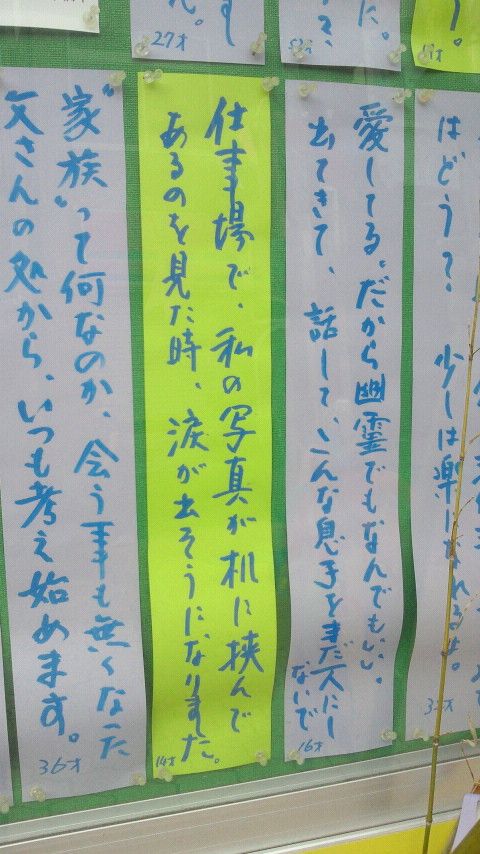 はどう?、少しは楽に
愛してる。だから幽霊でもなんでもいい。
出てきて、話して、こんな息子をまだ一人にし
ないで
16才
仕事場で、私の写真が机に挟んで
あるのを見た時、涙が出そうになりました。
14才
"家族"って何なのか、会う事も無くなった
父さんの処から、いつも考え始めます。
36才
27才